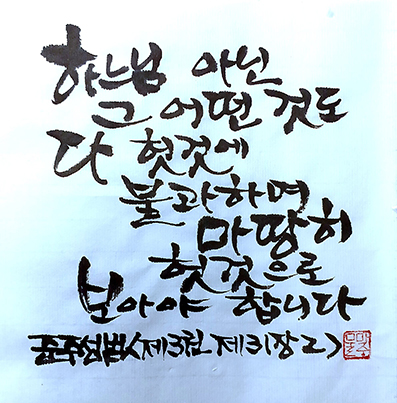 하느님 아닌
그 어떤 것도
다 헛것에
불과하며
마땅히
헛것으로
보아야 합니다
준주성범 제3권 제31장 2>